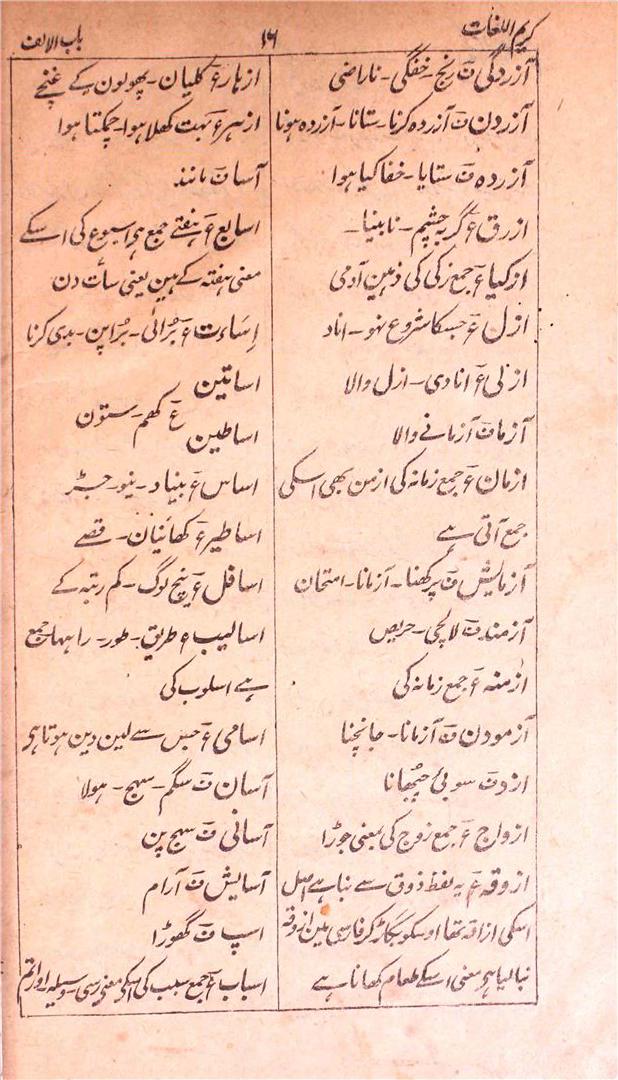 کریم اللغات
۱۶
باب الالف
آزردگی ف رنج۔ خفگی۔ ناراضی
آزردن ف آزردہ کرنا۔ ستانا۔ آزردہ ہونا
آزردہ ف ستایا۔ خفا کیا ہوا
ازرق ع گربہ چشم۔ نابینا۔
ازکیا ع جمع زکی کی ذہین آدمی
ازل ع جسکا شروع نہو۔ اناد
ازلی ع انادی۔ ازل والا
آزما ف آزمانے والا
ازمان ع جمع زمانہ کی ازمن بھی اسکی
جمع آتی ہے
آزمایش ف پرکھنا۔ آزمانا۔ امتحان
آزمند ف لالچی۔ حریص
ازمنہ ع جمع زمانہ کی
آزمودن ف آزمانا۔ جانچنا
ازدت سوئی چبھانا
ازواج ع جمع زوج کی بمعنی جوڑا
ازوقہ ع یہ لفظ ذوق سے بنا ہے اصل
اسکی ازاقہ تھا اوسکو بگاڑ کر فارسی مین ازوقہ
بنا لیا ہی معنی اسکے طعام کھانا ہے
ازہار ع کلیان۔ پھولون کے غنچے
ازہر ع بہت کھلا ہوا۔ چمکتا ہوا
آسا ف مانند
اسابع ع ہفتے جمع ہی اسبوع کی اسکے
معنی ہفتہ کے ہین یعنی سات دن
اِساءت ع بُرائی۔ بُراپن۔ بدی کرنا
اساتین
ع کھم۔ ستون
اساطین
اساس ع بنیاد۔ نیو۔ جڑ
اساطیر ع کہانیان۔ قصے
اسافل ع نیچ لوگ۔ کم رتبہ کے
اسالیب ع طریق۔ طور۔ راہہا۔ جمع
ہے اسلوب کی
اسامی ع جس سے لین دین ہوتا ہی
آسان ف سگم۔ سہج۔ ہولا
آسانی ف سہج پن
آسایش ف آرام
اسپ ف گھوڑا
اسباب ع جمع سبب کی اسکی معنی رسی وسیلہ اور